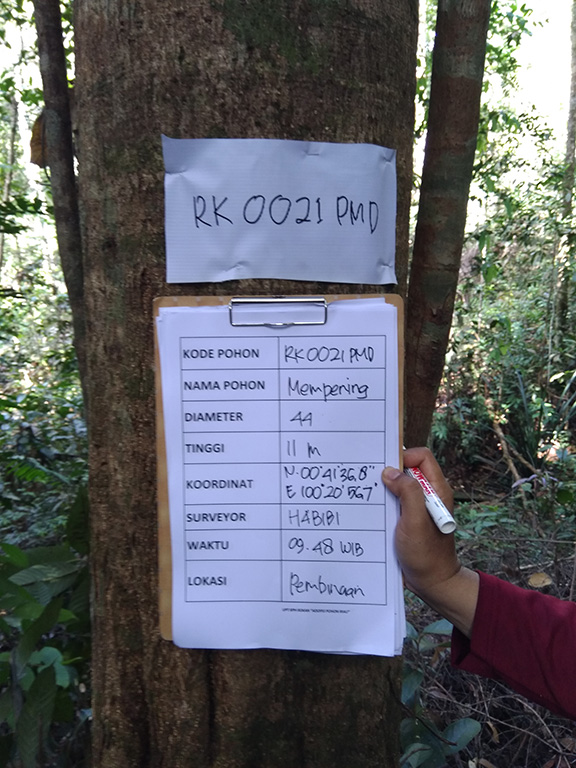 RK 0021 PMD
KODE POHON RK 0021 PMD
NAMA POHON Mempening
DIAMETER 44
TINGGI 11 m
KOORDINAT N. 00°41'36,8"
E 100°20'56,7"
SURVEYOR HABIBI
WAKTU 09.48 WIB
LOKASI Pembinaan